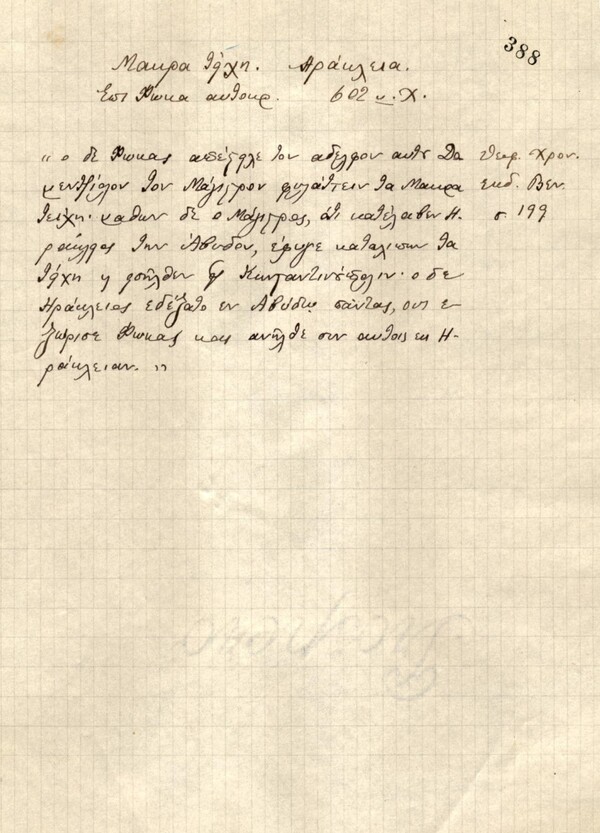 388
Μακρα τείχη. Ηράκλεια.
Επι Φωκα αυτοκρ. 602 μ. Χ.
„ ο δε Φωκας απέστειλε τον αδελφον αυτȣ Δο
μεντζίολον τον Μάγιστρον φυλάττειν τα Μακρα
τείχη· μαθων δε ο Μάγιστρος, ότι κατέλαβεν Η-
ράκλειος την Άβυδον, έφυγε καταλιπων τα
τείχη κ εισήλθεν εις Κωνσταντινȣπολιν· ο δε
Ηράκλειος εδέξατο εν Αβύδω πάντας, ους ε-
ξώρισε Φωκας και ανήλθε συν αυτοις εις Η-
ράκλειαν. „
Θεοφ. Χρον.
εκδ. Βεν.
σ 199